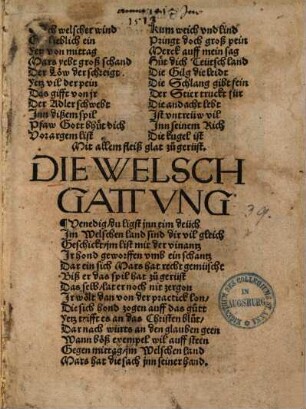 1513
welscher wind
lieblich ein
Jetz von mittag
Mars redt groß schand
Der Löw der schreigt
Jetz vil der pein
Das gifft von jr
Der Adler schwebt
Inn disem spil
Pfaw Gott bhüt dich
Vor argem list
Kum weich vnd lind
Pringt doch groß pein
Merck auff mein sag
Hüt dich Teütsch land
Die Gilg die leidt
Die Schlang gibt sein
Der Stier truckt für
Die andacht lebt
Ist vntreüw vil
Inn seinem Rich
Die kugel ist
Mit allem fleiß glat zügerüst.
DIE WELSCH
GATTVNG
Venedig du ligst jnn eim teüch
Im Welschen land sind dir vil gleich
Geschickt jm list mit der vinantz
Ir hond geworffen vmb ein schantz
Dar ein sich Mars hat recht gemischt
Biß er das spil hat zügerüst
Das selb hat er noch nit zergon
Ir wölt dan von der practick lon
Die sich hond zogen auff das gütt
Jetz trifft es an das Christen blüt
Dar nach würts an den glauben geen
Wann böß exempel wil auff steen
Gegen mittag jm Welschen land
Mars hat die sach jnn seiner hand.
39.
IN
AUGSBURG